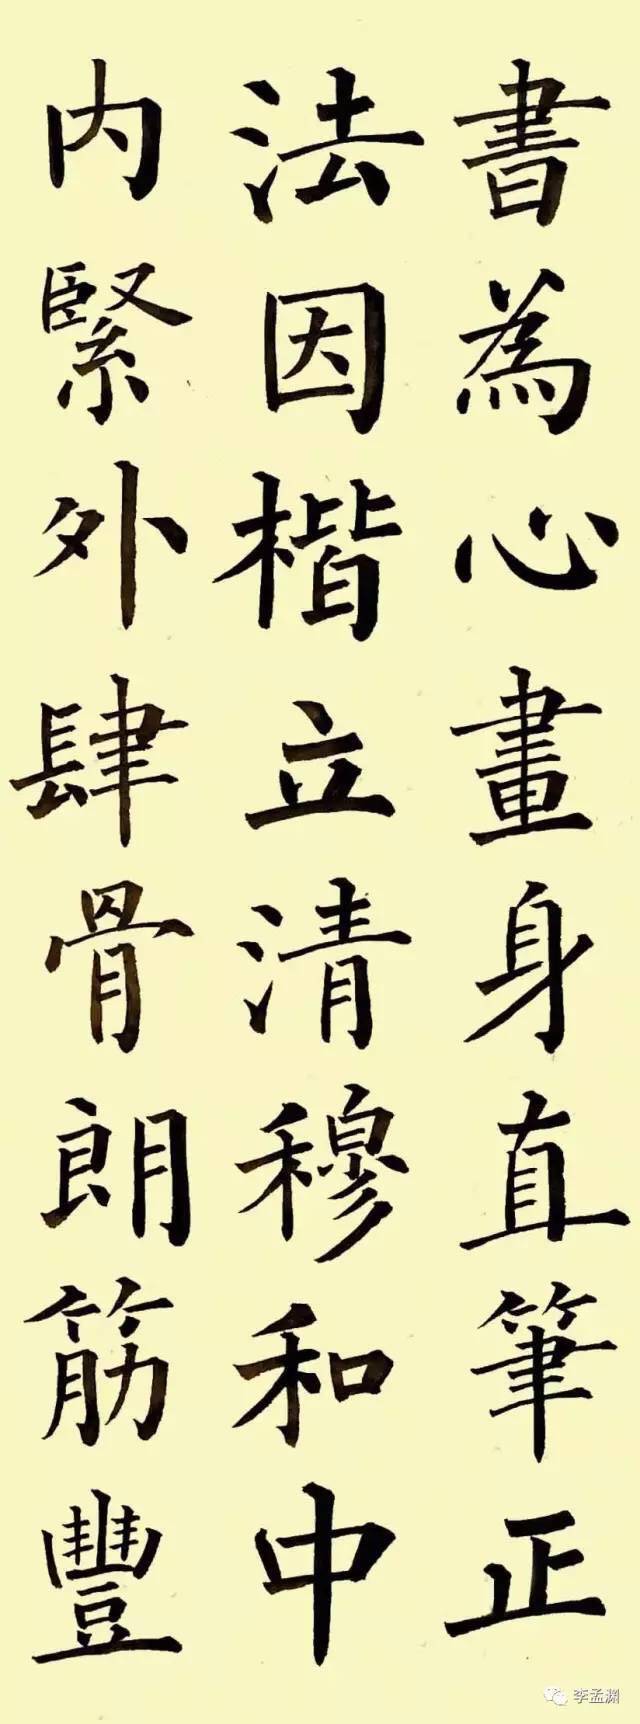 書為心畫身直筆正
法因楷立清穆和中
内緊外肆骨朗筋豐
李孟渊